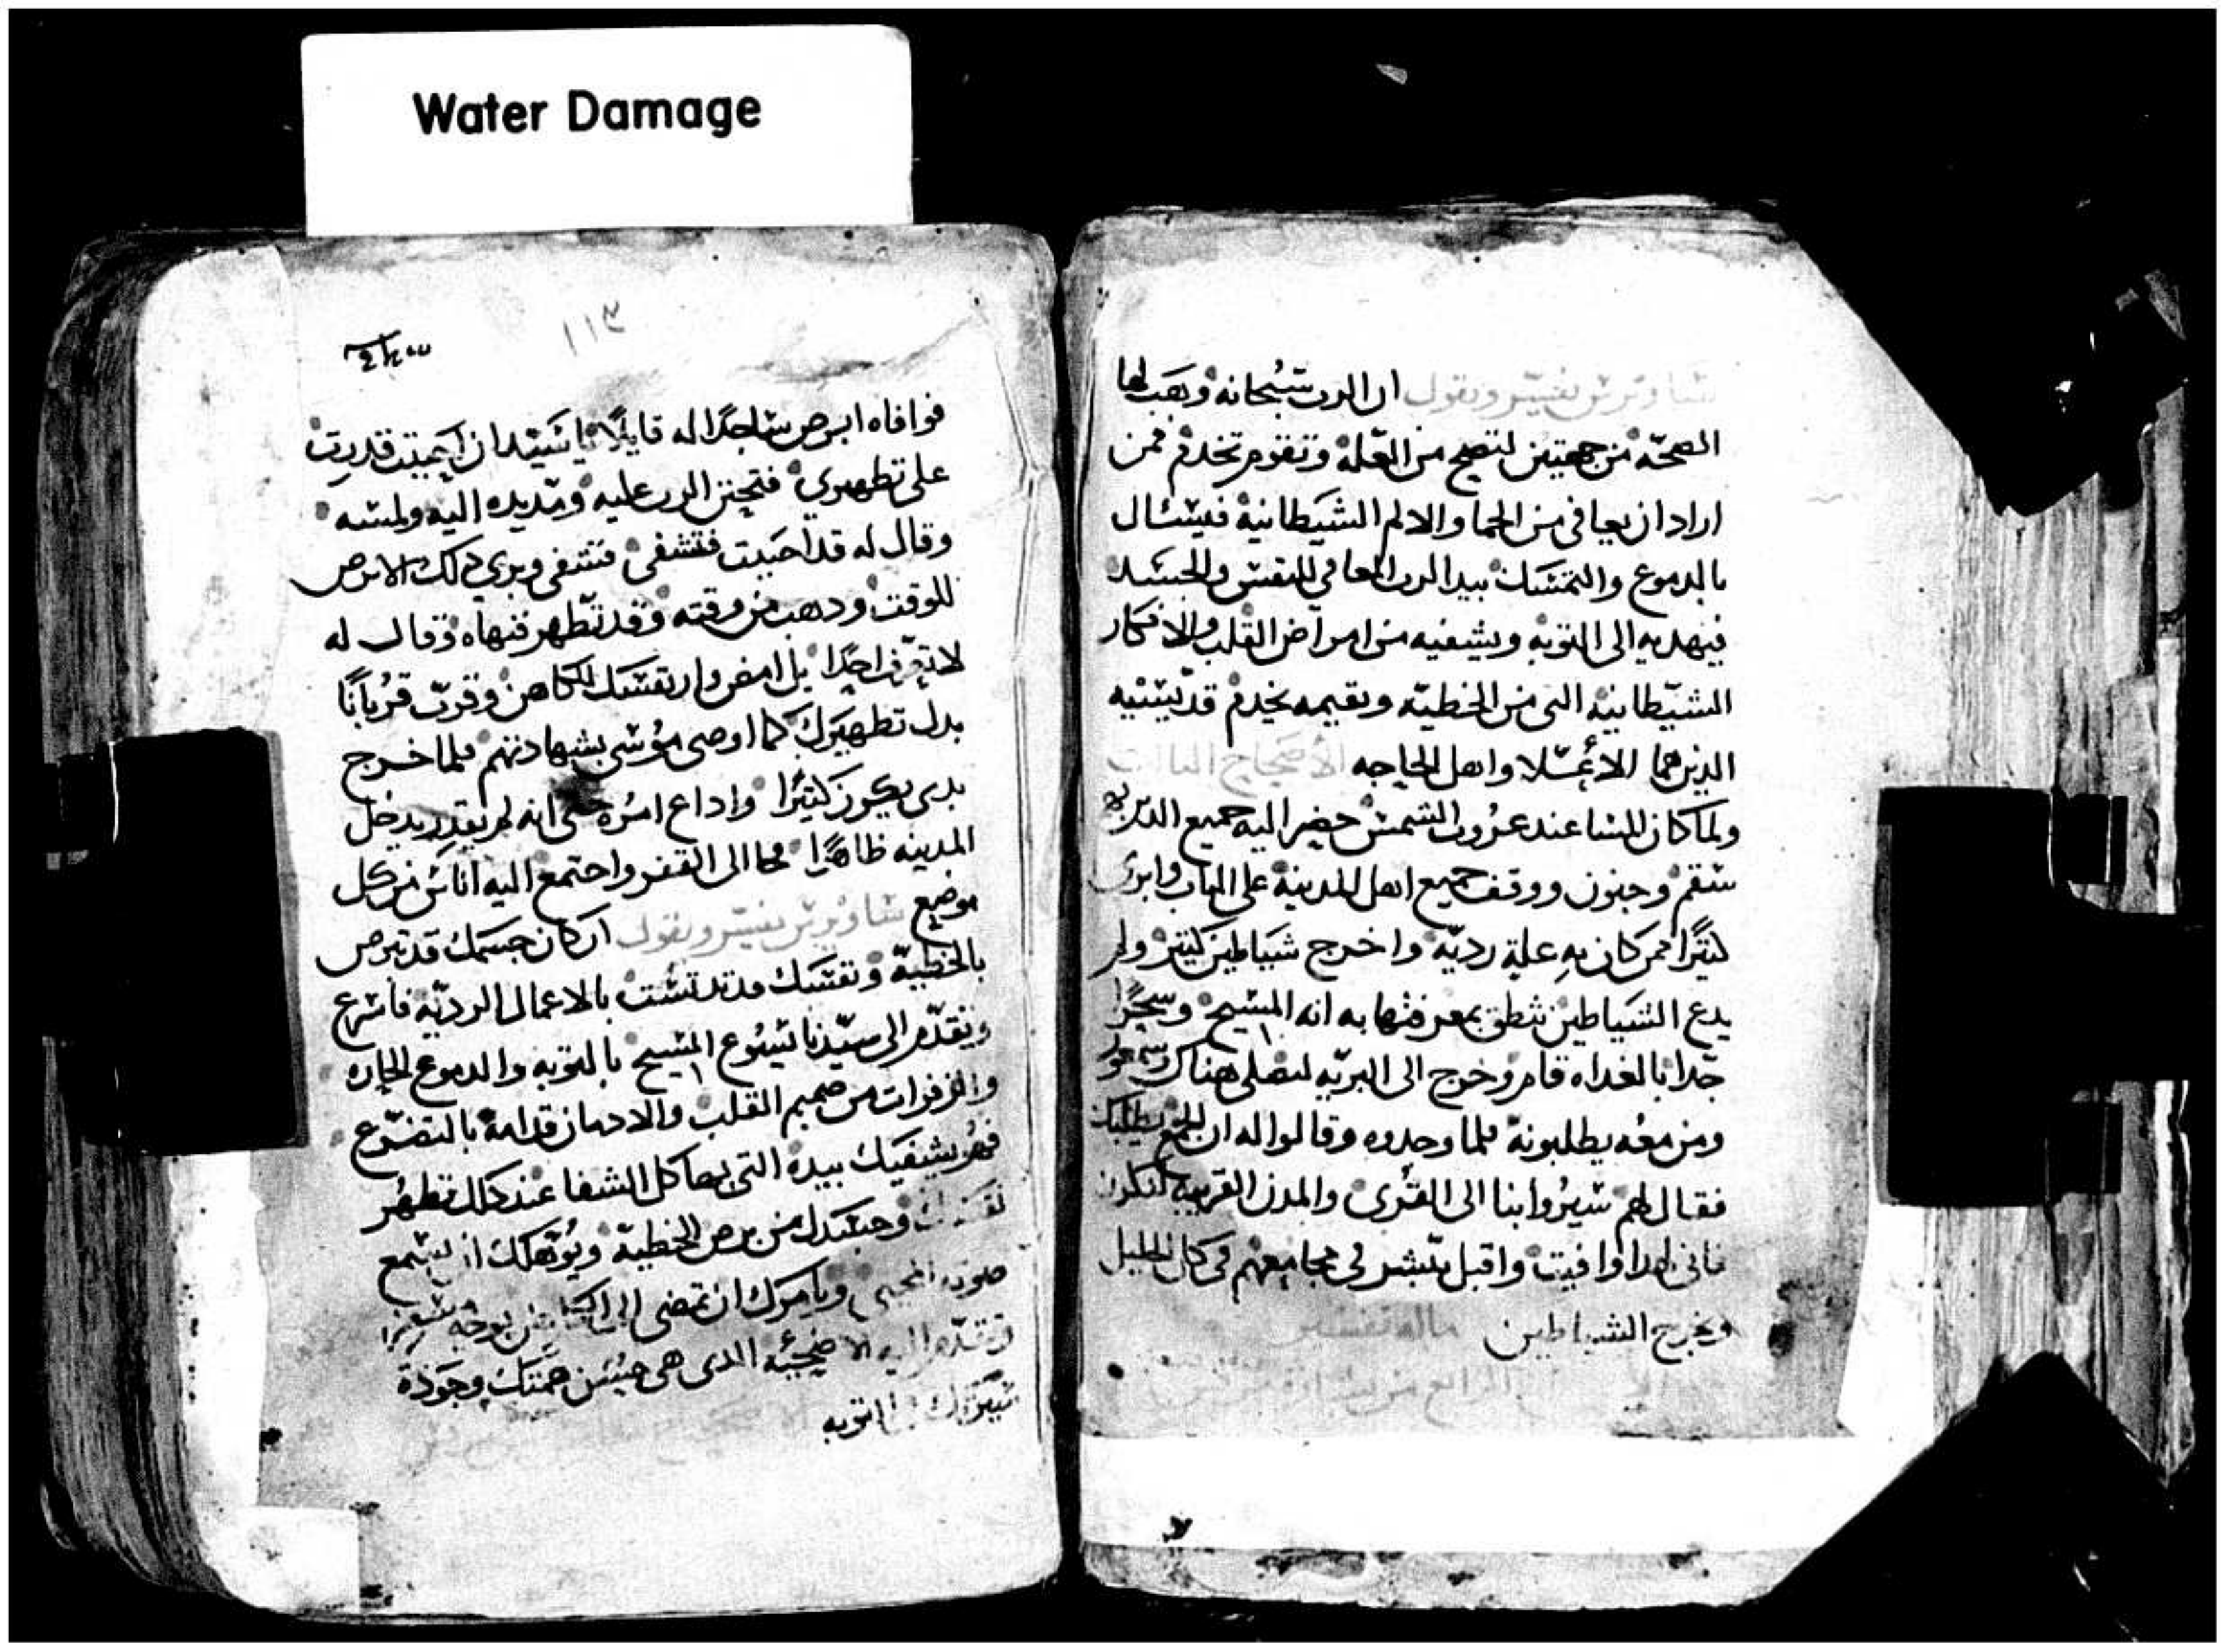 Water Damage
ساويرس يفسر ويقول ان الرب سبحانه وهب لها
الصحه من جهتين لتصح من العله وتقوم تخدم فمن
اراد ان يعافى من الحما والالم الشيطانية فيسال
بالدموع والتمسك بيد الرب المعافي للنفس والجسد
فيهديه الى التوبه ويشفيه من امراض القلب والافكار
الشيطانيه التى من الخطيه ويقيمه يخدم قديسيه
الدين هما الاغسلا واهل الحاجه الاصحاح التالت
ولما كان المسا عند غروب الشمس حضر اليه جميع الدين به
سقم وجنون ووقف جميع اهل المدينة على الباب وابرى
كتيرا ممن كان به علية رديه واخرج شياطين كتير ولم
يدع الشياطين تنطق بمعرفتها به انه المسيح وسحرا
جدا بالغداه قام وخرج الى البريه ليصلى هناك وسمعون
ومن معه يطلبونه فلما وجدوه وقالوا له ان الجمع يطلبك
فقال لهم سيروا بنا الى القرى والمدن القريبه لنكرز
فانى لهدا وافيت واقبل يبشر فى مجامعهم فى كل الجليل
ويخرج الشياطين ماله تفسير
الرابع من
١١٣
فوافاه ابرص ساجدا له قايلا يا سيد ان احببت قدرت
على تطهيري فتحنن الرب عليه ومد يده اليه ولمسه
وقال له قد احببت فتشفى فتشفى وبري دلك الابرص
للوقت ودهب من وقته وقد تطهر فنهاه وقال له
لا تعرف احدا بل امض وار نفسك للكاهن وقرب قربانا
بدل تطهيرك كما اوصى موسى بشهادتهم فلما خرج
بدى يكرز كتيرا واداع امره حتى انه لم يقدر يدخل
المدينه ظاهرا فمجا الى القفر واجتمع اليه اناس من كل
موضع ساويرس يفسر ويقول ان كان جسمك قد تبرص
بالخطية ونفسك قد تدنست بالاعمال الرديه فاسرع
وتقدم الى سيدنا يسوع المسيح بالتوبه والدموع الحاره
والزفرات من صميم القلب والادمان قدامه بالتضرع
فهو يشفيك بيده التى بها كل الشفا عند دلك تطهر
نفسك وجسدك من برص الخطية ويوهلك ان تسمع
صوته المحيى ويامرك ان تمضى الى الكاهن بوجه
وتقدم اليه الاضحيه الدى هى حسن همتك وجودة
سيرتك التوبه